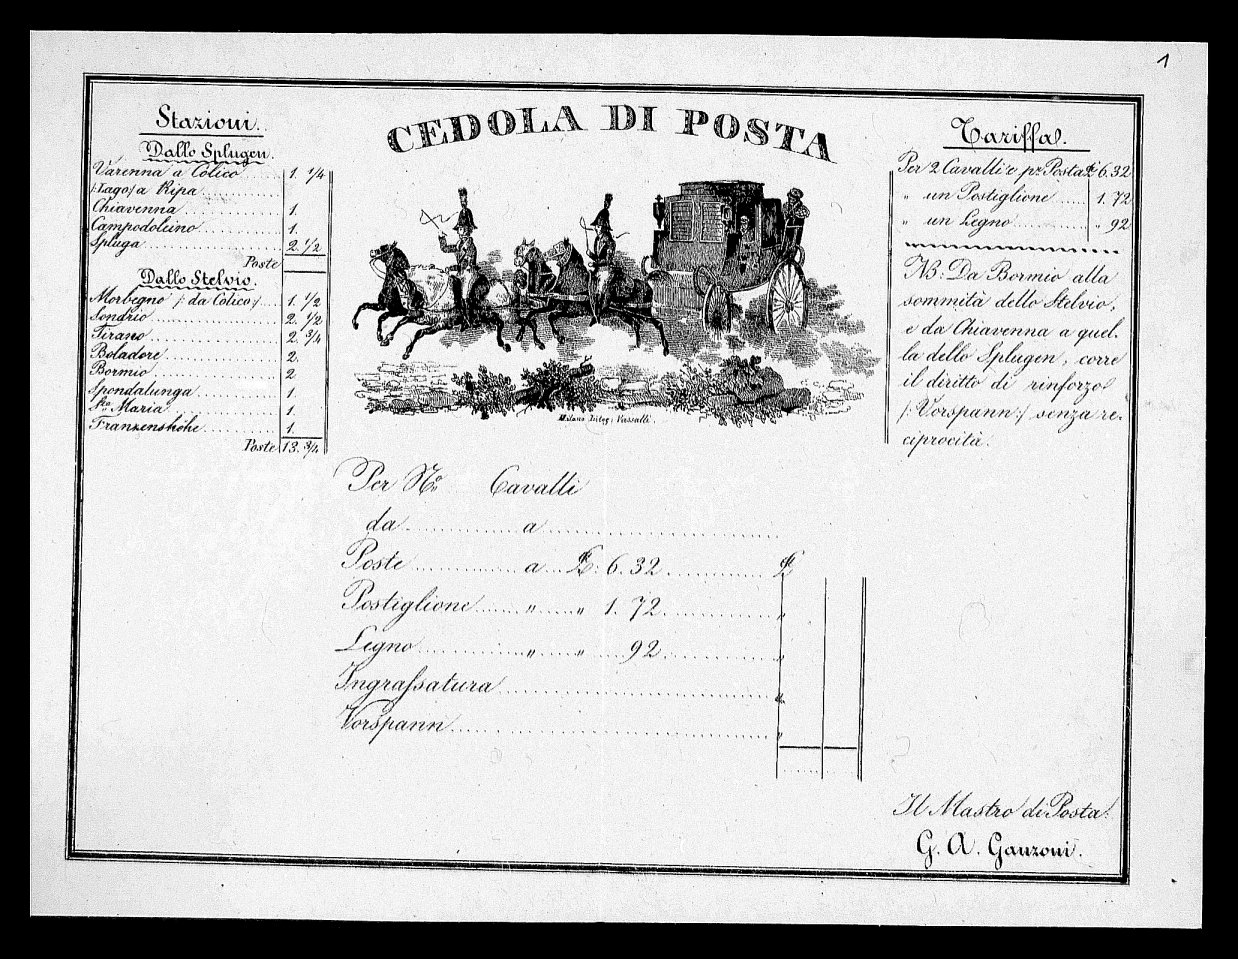 1
CEDOLA DI POSTA
Stazioni.
Dallo Splugen.
Varenna a Cólico ..... 1. 1/4
/:Lago:/ a Ripa ..........
Chiavenna ............ 1.
Campodolcino .......... 1.
Spluga ................ 2. 1/2
Poste
Dallo Stelvio.
Morbegno /: da Cólico :/ ... 1. 1/2
Sondrio ............... 2. 1/2
Tirano ................ 2. 3/4
Boladore .............. 2.
Bormio ................ 2
Spondalunga ........... 1.
Sta. Maria ............. 1.
Franzenshöhe .......... 1.
Poste 13. 3/4
Milano Litog: Vassalli.
Tariffa.
Per 2 Cavalli e pr. Posta £ 6.32
" un Postiglione ..... 1. 72
" un Legno ........... " 92
NB: Da Bormio alla
sommità dello Stelvio,
e da Chiavenna a quel-
la dello Splugen, corre
il diritto di rinforzo
/: Vorspann :/ senza re-
ciprocità.
Per No. Cavalli
da ............ a ......................
Poste ............ a ... £: 6. 32 ............ £
Postiglione ...... " ..... " 1. 72 ............ "
Legno ............ " ..... " .... 92 ............ "
Ingrassatura ........................... "
Vorspann ............................... "
Il Mastro di Posta.
G. A. Ganzoni.